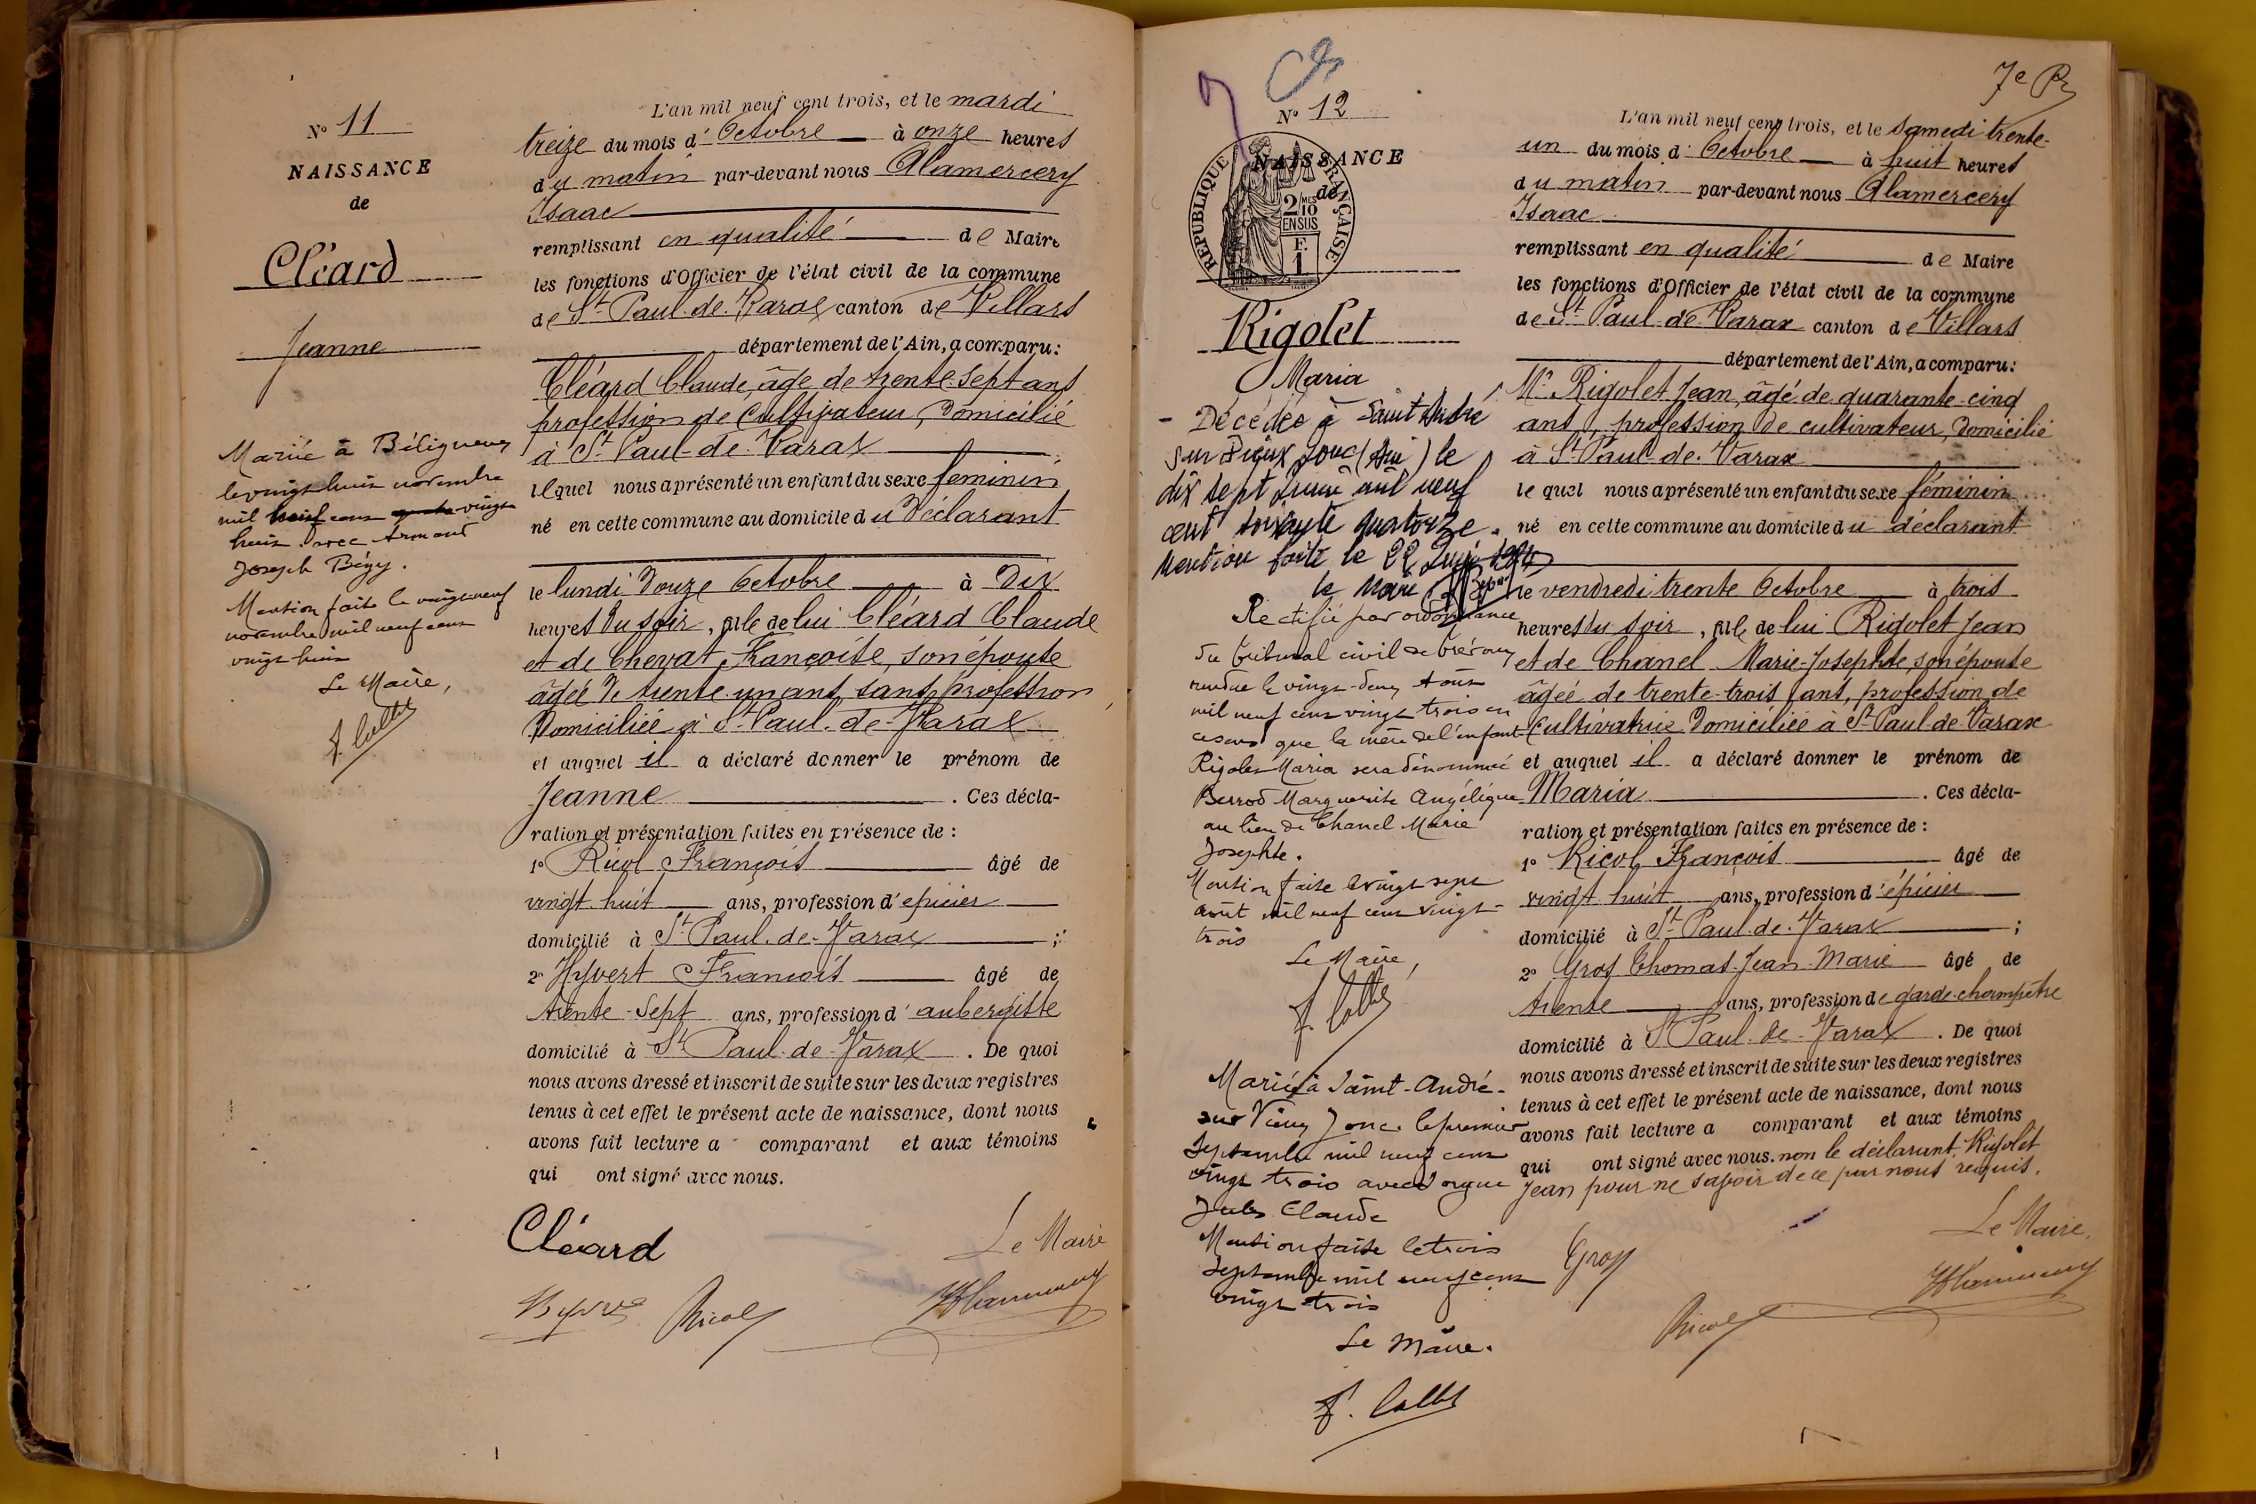 N° 11
NAISSANCE
de
Cléard
Jeanne
Mariée à Béligneux
le vingt huit novembre
mil neuf cent vingt
huit avec Armand
Joseph Bégy.
Mention faite le vingt neuf
novembre mil neuf cent
vingt huit
Le Maire,
L'an mil neuf cent trois, et le mardi
treize du mois d'Octobre à onze heures
du matin par-devant nous Alamercery
Isaac
remplissant en qualité de Maire
les fonctions d'Officier de l'état civil de la commune
de St Paul-de-Varax canton de Villars
département de l'Ain, a comparu:
Cléard Claude, âgé de trente-sept ans
profession de cultivateur, domicilié
à St Paul-de-Varax
lequel nous a présenté un enfant du sexe féminin
né en cette commune au domicile du Déclarant
le lundi douze Octobre à Dix
heures du soir, fille de lui Cléard Claude
et de Chevat Françoise, son épouse
âgée de trente-un ans, sans profession
Domiciliée à St Paul-de-Varax
et auquel il a déclaré donner le prénom de
Jeanne . Ces décla-
ration et présentation faites en présence de :
1° Ricol François âgé de
vingt huit ans, profession d'épicier
domicilié à St Paul-de-Varax ;
2° Hyvert François âgé de
trente-sept ans, profession d'aubergiste
domicilié à St Paul-de-Varax . De quoi
nous avons dressé et inscrit de suite sur les deux registres
tenus à cet effet le présent acte de naissance, dont nous
avons fait lecture a comparant et aux témoins
qui ont signé avec nous.
Cléard
Le Maire
Hyvert Ricol Alamercery
7e
N° 12
NAISSANCE
de
RÉPUBLIQUE FRANÇAISE
2 MES 10
EN SUS
F.
1
Rigolet
Maria
- Décédée à Saint André
sur Vieux Jonc (Ain) le
dix sept Juin mil neuf
cent soixante quatorze.
Mention faite le 22 Juin 1974
le Maire
Rectifié par ordonnance
du tribunal civil de Trévoux
rendue le vingt-deux Août
mil neuf cent vingt trois en
ce sens que la mère de l'enfant
Rigolet Maria sera dénommée
Berrod Marguerite Angélique
au lieu de Chanel Marie
Josephte.
Mention faite le vingt sept
août mil neuf cent vingt-
trois
Le Maire,
Mariée à Saint-André-
sur Vieux Jonc le premier
Septembre mil neuf cent
vingt trois avec
Jules Claude
Mention faite le trois
Septembre mil neuf cent
vingt trois
Le Maire.
L'an mil neuf cent trois, et le samedi trente-
un du mois d'Octobre à huit heures
du matin par-devant nous Alamercery
Isaac
remplissant en qualité de Maire
les fonctions d'Officier de l'état civil de la commune
de St Paul-de-Varax canton de Villars
département de l'Ain, a comparu:
Mr Rigolet Jean, âgé de quarante-cinq
ans, profession de cultivateur, domicilié
à St Paul-de-Varax
lequel nous a présenté un enfant du sexe féminin
né en cette commune au domicile du déclarant
le vendredi trente Octobre à trois
heures du soir, fille de lui Rigolet Jean
et de Chanel Marie-Josephte, son épouse
âgée de trente-trois ans, profession de
cultivatrice domiciliée à St Paul-de-Varax
et auquel il a déclaré donner le prénom de
Maria . Ces décla-
ration et présentation faites en présence de :
1° Ricol François âgé de
vingt huit ans, profession d'épicier
domicilié à St Paul-de-Varax ;
2° Gros Thomas Jean-Marie âgé de
trente ans, profession de garde-champêtre
domicilié à St Paul-de-Varax . De quoi
nous avons dressé et inscrit de suite sur les deux registres
tenus à cet effet le présent acte de naissance, dont nous
avons fait lecture a comparant et aux témoins
qui ont signé avec nous. non le déclarant, Rigolet
Jean pour ne savoir de ce par nous requis.
Le Maire,
Gros
Ricol Alamercery